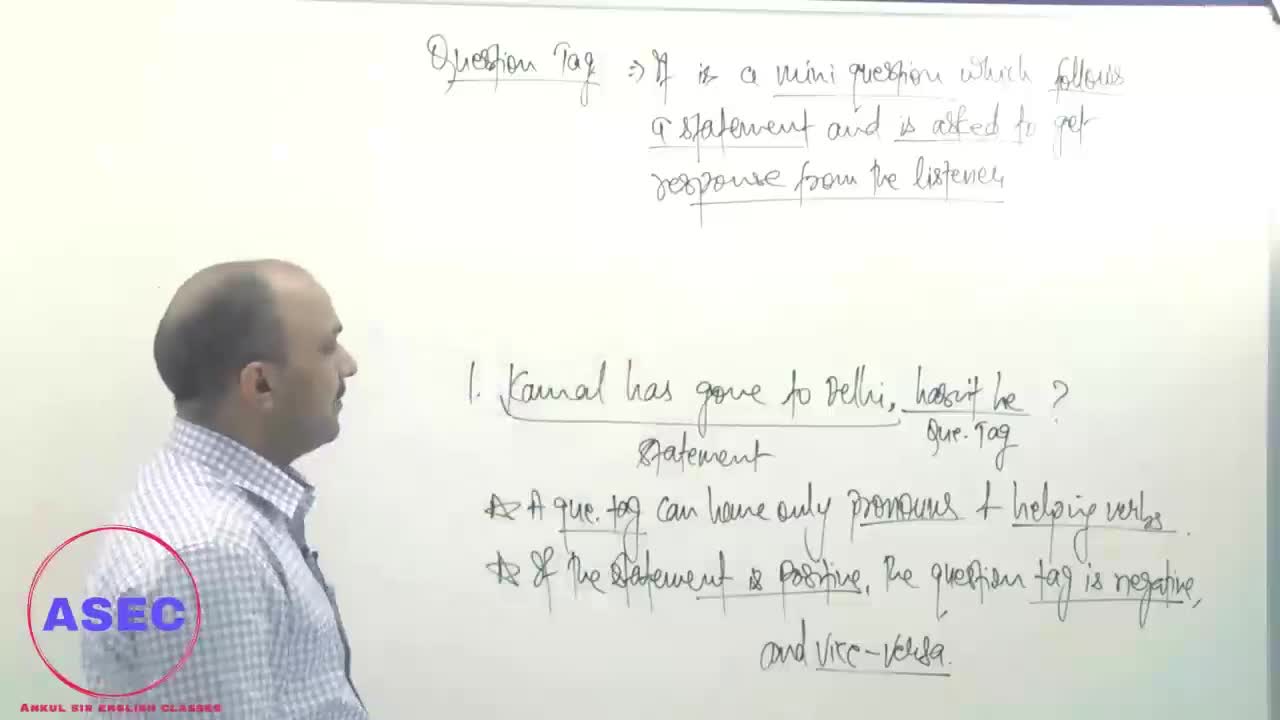 Question Tag ⇒ It is a mini question which follows
a statement and is asked to get
response from the listener
1. Kamal has gone to Delhi, hasn't he ?
statement
Que. Tag
☆ A que. tag can have only pronouns + helping verbs.
☆ If the statement is positive, the question tag is negative,
and vice-versa.
ASEC
ANKUL SIR ENGLISH CLASSES